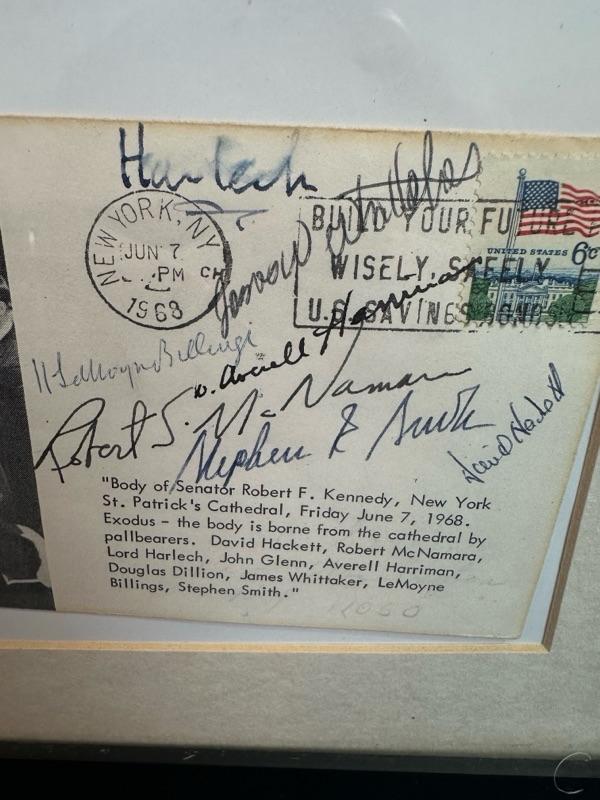 Harlech
NEW YORK, N.Y.
JUN 7
PM
1968
BUILD YOUR FUTURE
WISELY, SAFELY
U.S. SAVINGS BONDS
UNITED STATES 6¢
LeMoyne Billings
W. Averell Harriman
Robert S. McNamara
Stephen E Smith
David Hackett
"Body of Senator Robert F. Kennedy, New York
St. Patrick's Cathedral, Friday June 7, 1968.
Exodus - the body is borne from the cathedral by
pallbearers. David Hackett, Robert McNamara,
Lord Harlech, John Glenn, Averell Harriman,
Douglas Dillion, James Whittaker, LeMoyne
Billings, Stephen Smith."